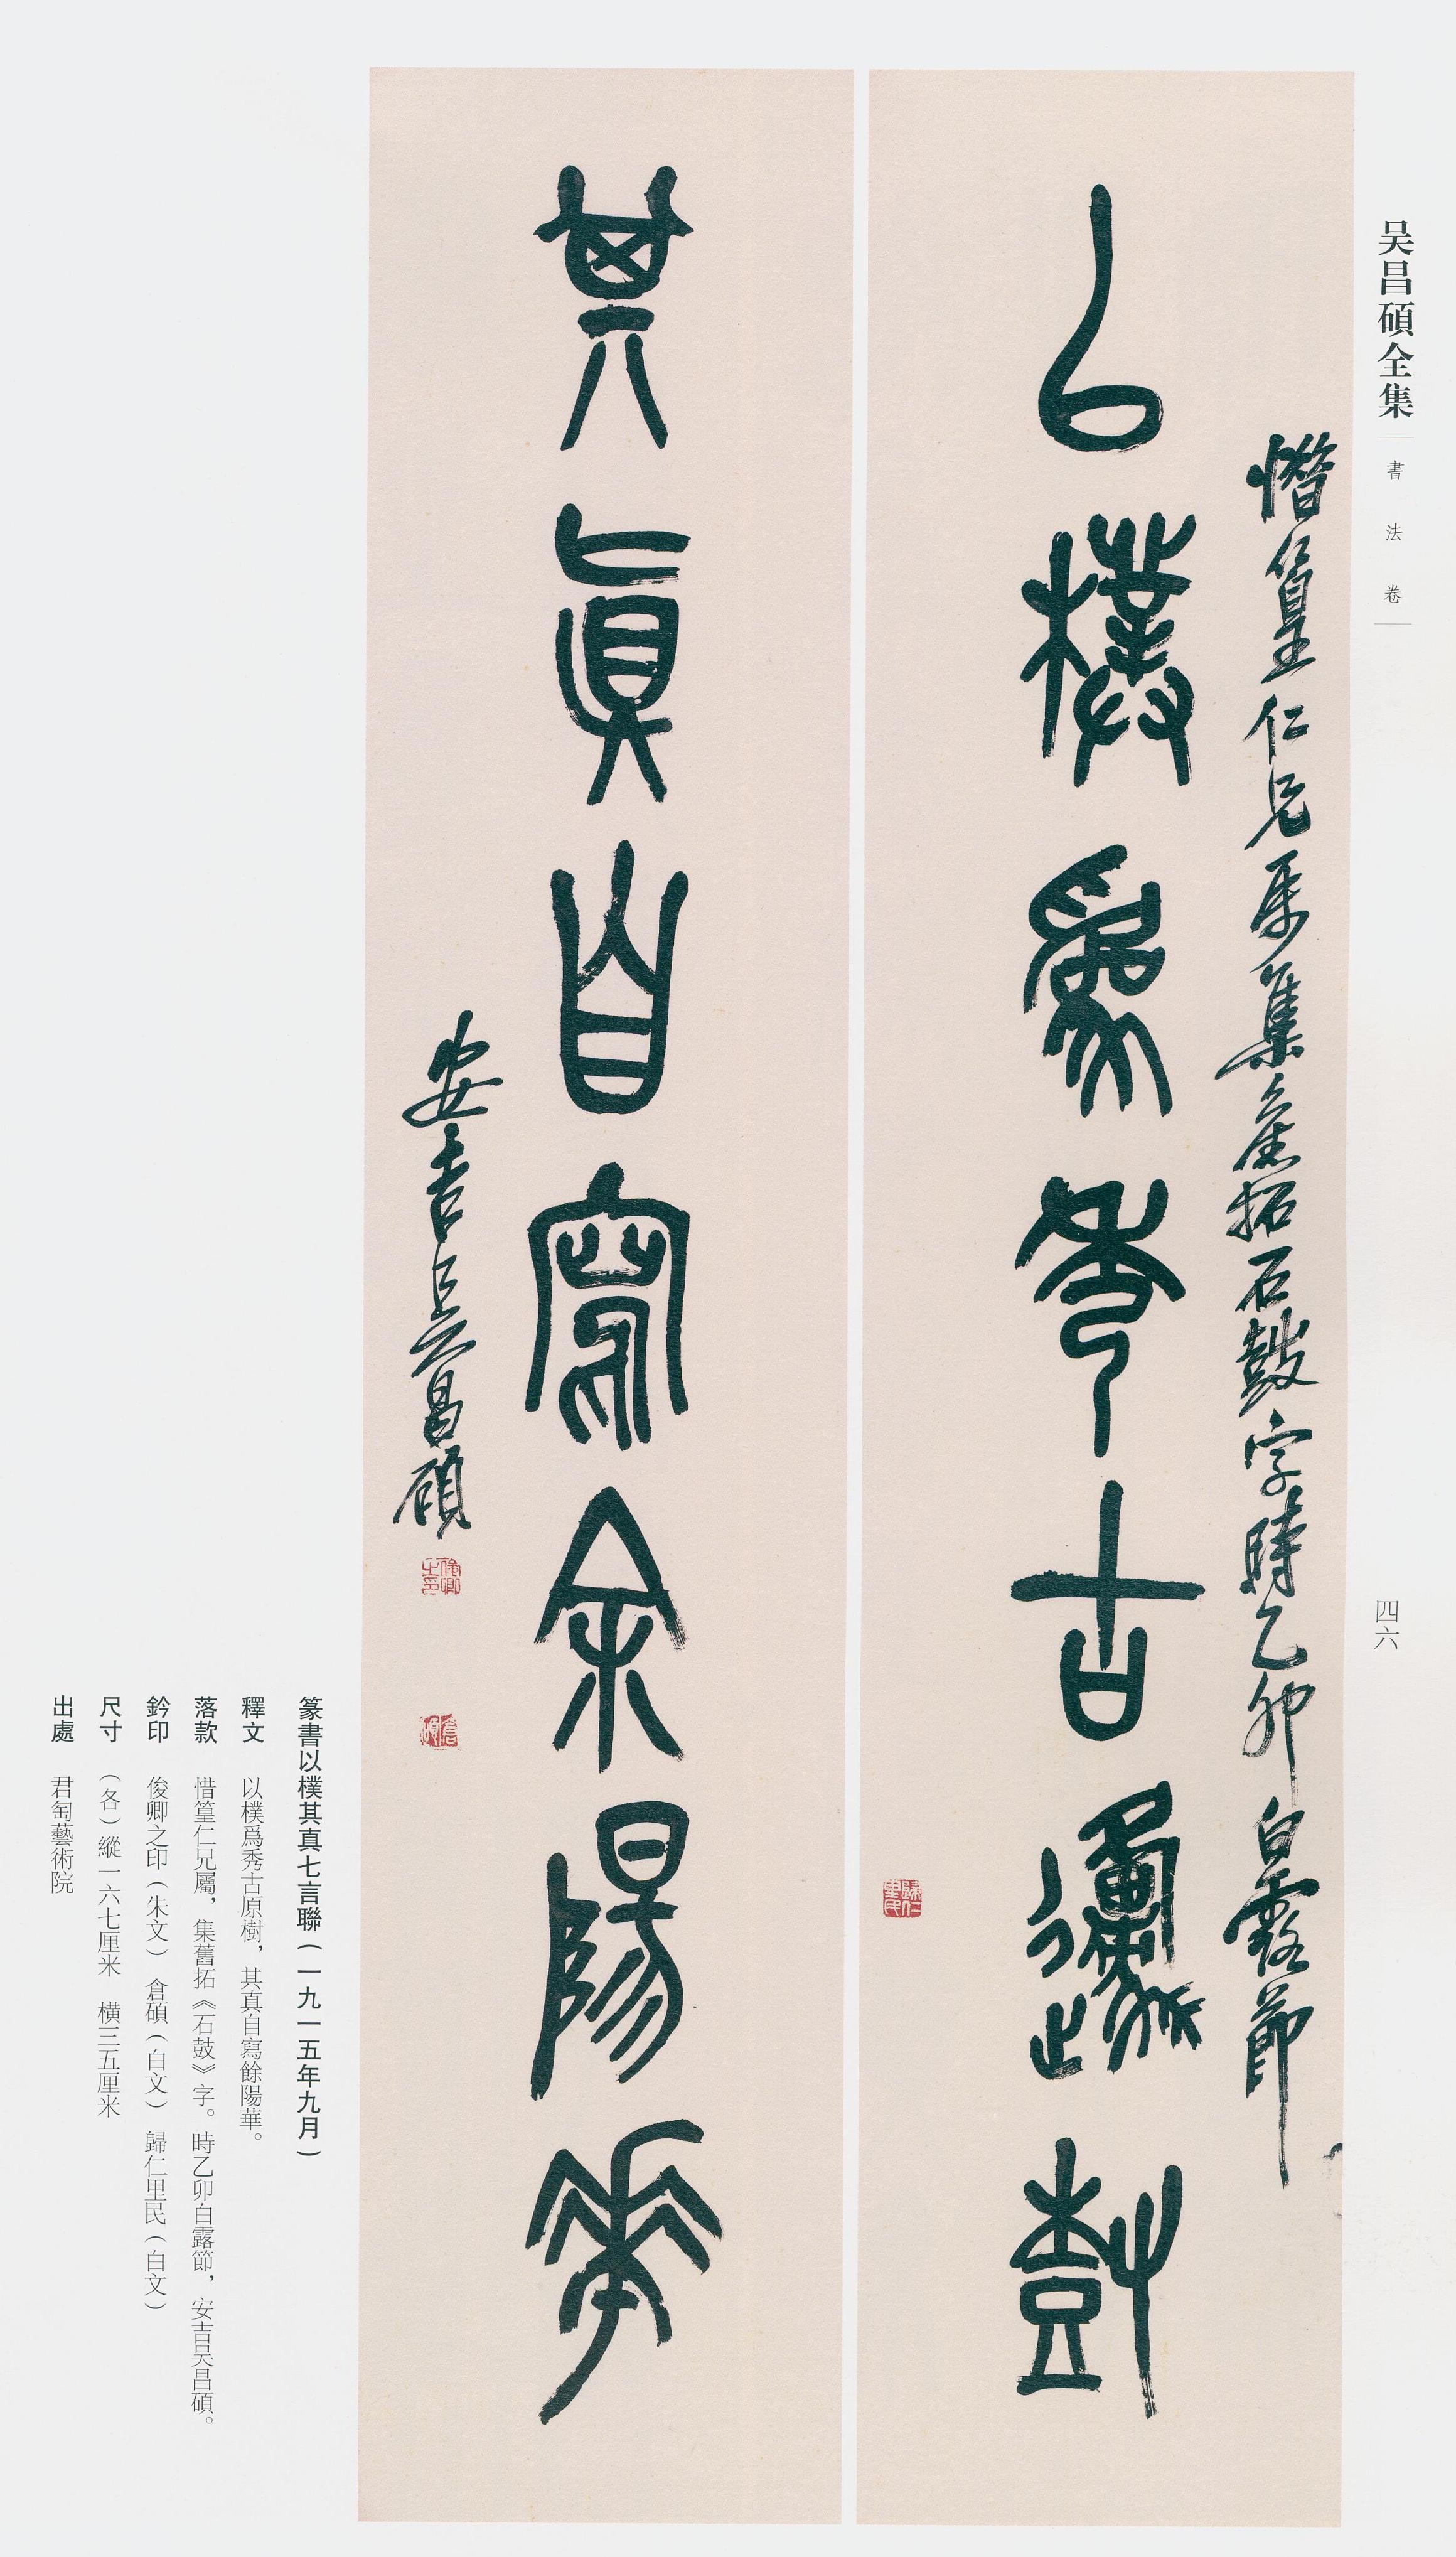 吴昌碩全集
書法卷
四六
惜篁仁兄属集舊拓石鼓字時乙卯白露節
以樸爲秀古邍樹
歸仁里民
其眞自寫余陽華
安吉吳昌碩
俊卿之印
倉碩
篆書以樸其真七言聯（一九一五年九月）
釋文 以樸爲秀古原樹，其真自寫餘陽華。
落款 惜篁仁兄屬，集舊拓《石鼓》字。時乙卯白露節，安吉吴昌碩。
鈐印 俊卿之印（朱文） 倉碩（白文） 歸仁里民（白文）
尺寸 （各）縱一六七厘米 橫三五厘米
出處 君匋藝術院